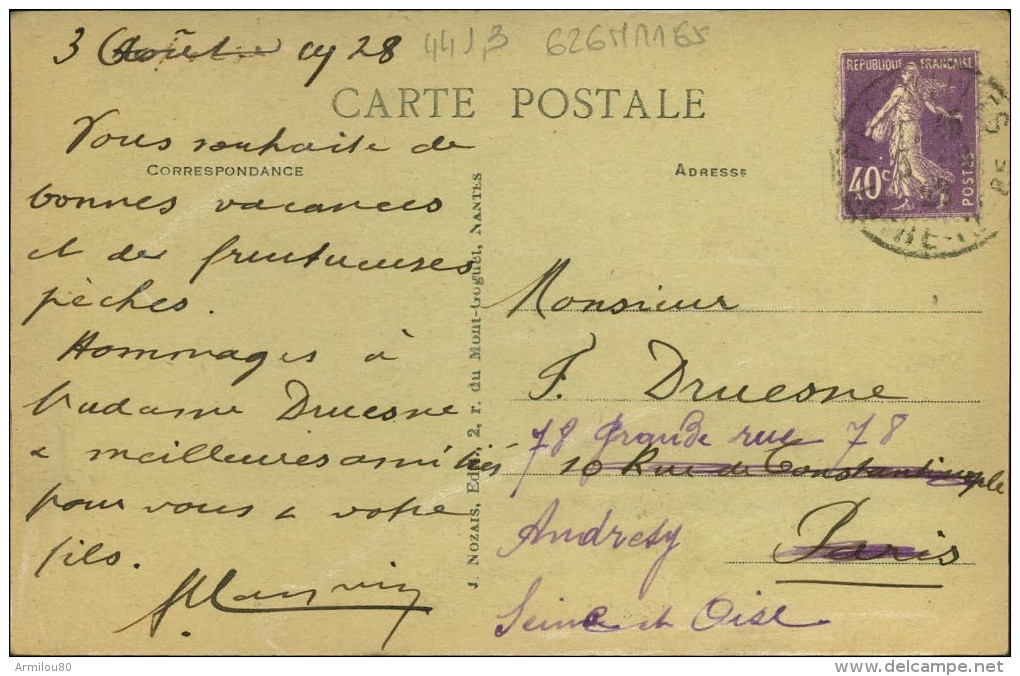 3 Août 1928
44J,3
CARTE POSTALE
CORRESPONDANCE
ADRESSE
REPUBLIQUE FRANÇAISE
40c
POSTES
Vous souhaite de
bonnes vacances
et des fructueuses
pêches.
Hommages à
Madame Druesne
& meilleures amitiés
pour vous & votre
fils.
J. NOZAIS, Edit., 2, r. du Mont-Goguet, NANTES
Monsieur
F. Druesne
78 Grande rue 78
10 Rue de Constantinople
Andresy
Paris
Seine et Oise
Armilou80
delcampe.net